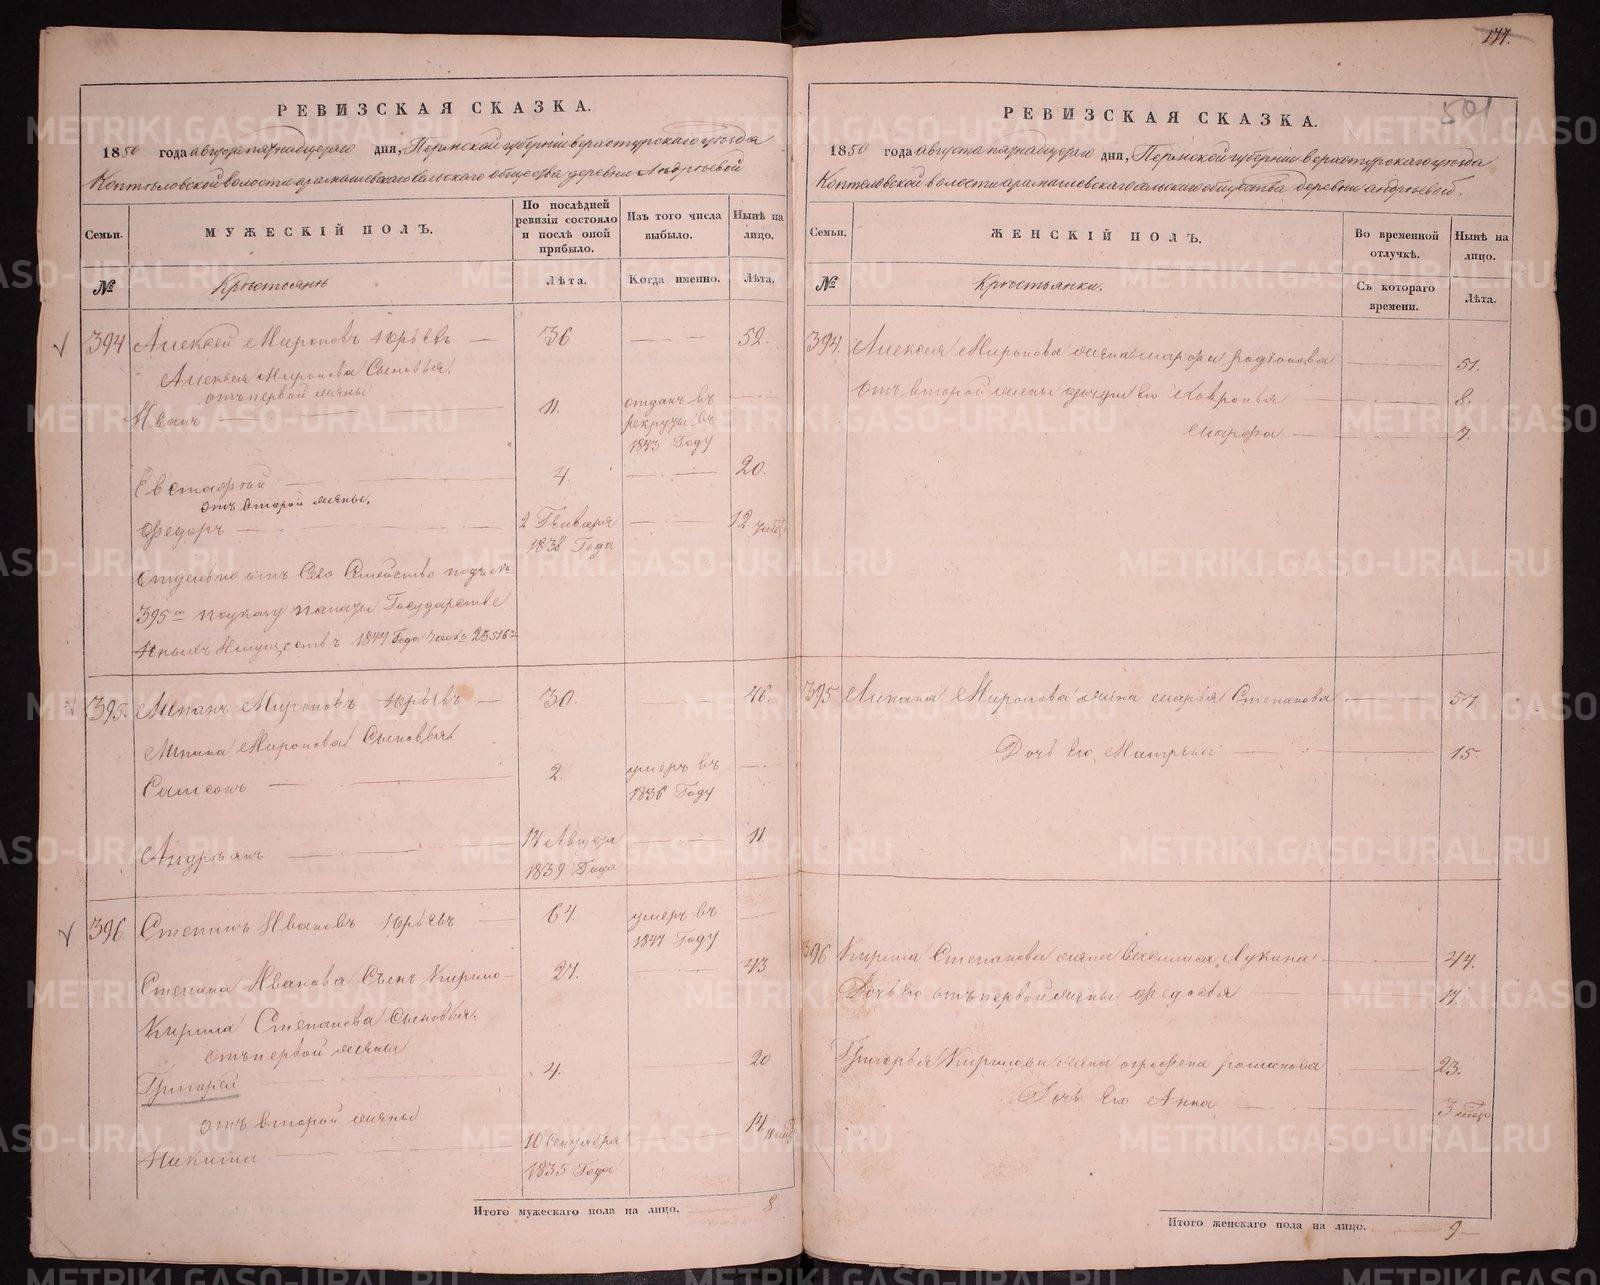 177.
501
РЕВИЗСКАЯ СКАЗКА.
1850 года августа пятнадцатаго дня, Пермской губернiи верхотурскаго уѣзда
Коптеловской волости арамашевскаго сельскаго общества деревни Андрѣевой
Семьи.
МУЖЕСКІЙ ПОЛЪ.
По послѣдней ревизіи состояло и послѣ оной прибыло.
Изъ того числа выбыло.
Нынѣ на лицо.
№
Крестьяне
Лѣта.
Когда именно.
Лѣта.
394 Алексей Мироновъ Юрьевъ 36 52.
Алексея Миронова Сыновья.
отъ первой жены
Иванъ 11. отданъ въ
рекруты въ
1843 Году
Евстафей 4. 20.
отъ второй жены,
Федоръ 2 Генваря 12
1838 Года
395 по указу палаты Государстве
Имуществъ 1847 Года
395. Мироновъ Юрьевъ 30. 46.
Миронова Сыновья
Самсонъ 2. умеръ въ
1836 Году
Андрѣянъ 14 Августа 11.
1839 Года
396. Степанъ Ивановъ Юрьевъ 64. умеръ въ
1847 Году
Степана Иванова Сынъ Кирило 27. 43
Кирила Степанова Сыновья.
отъ первой жены
Григорей 4. 20
отъ второй жены 14
Никита 10 Сентября
1835 Года
Итого мужескаго пола на лицо. 8
РЕВИЗСКАЯ СКАЗКА.
1850 года августа пятнадцатаго дня, Пермской губернiи верхотурскаго уѣзда
Коптеловской волости арамашевскаго сельскаго общества деревни андрѣевой.
Семьи.
ЖЕНСКІЙ ПОЛЪ.
Во временной отлучкѣ.
Нынѣ на лицо.
№
Крестьянки.
Съ котораго времени.
Лѣта.
394. Алексея Миронова жена марфа родiонова 51.
отъ второй жены дочери его Ховронья 8.
марфа 7.
395 Миронова жена марья Степанова 57.
Дочь его Матрена 15.
396 Кирила Степанова жена Василиса Лукина 44.
Дочь его отъ первой жены Федосья 17.
Григорья Кирилова жена аграфена романова 23.
Дочь его Анна 3
Итого женскаго пола на лицо. 9
METRIKI.GASO-URAL.RU